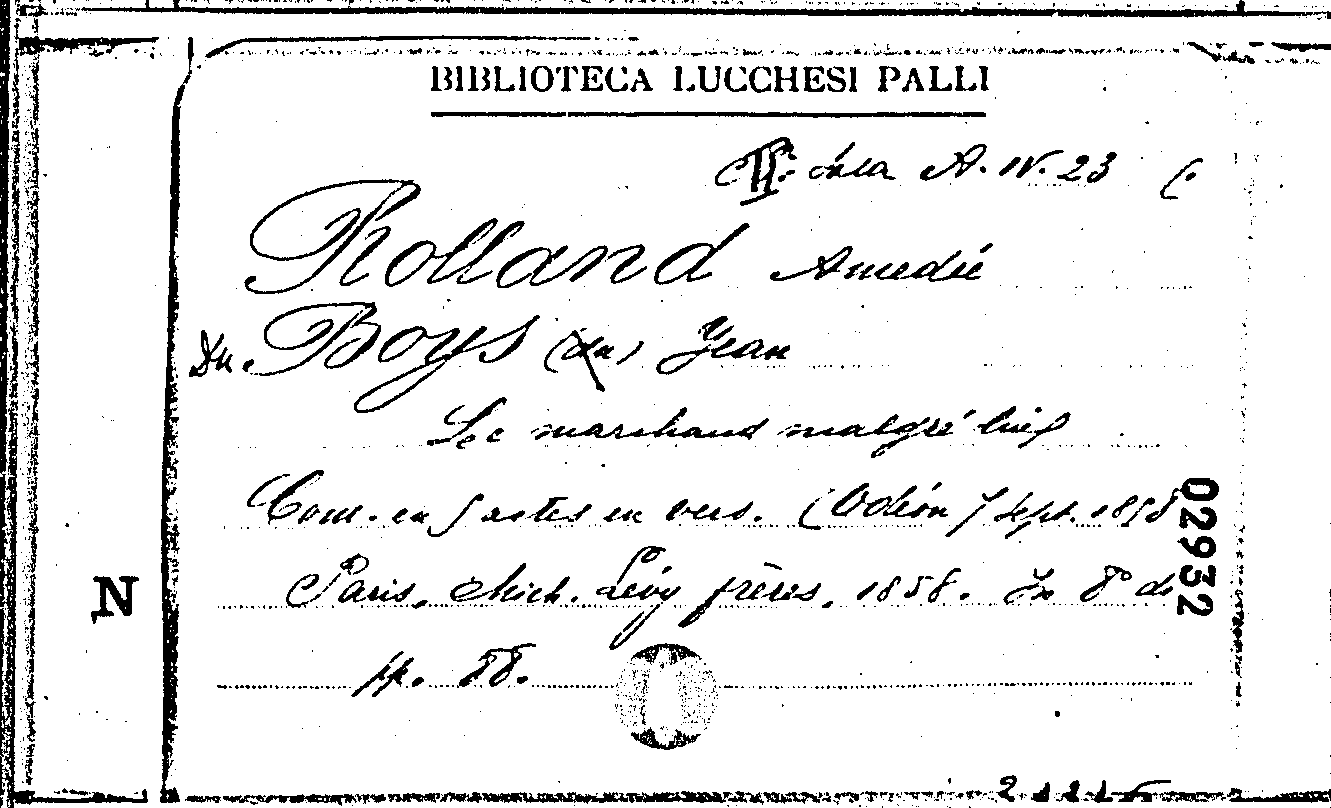 BIBLIOTECA LUCCHESI PALLI
II: Sala A. IV. 23 (.
Rolland Amedée
Du Boys (du) Jean
Le marchand malgré lui
Com. en 5 actes en vers. (Odéon 7 Sept. 1858
Paris, Mich. Lévy frères, 1858. In 8° di
pp. 88.
N
02932